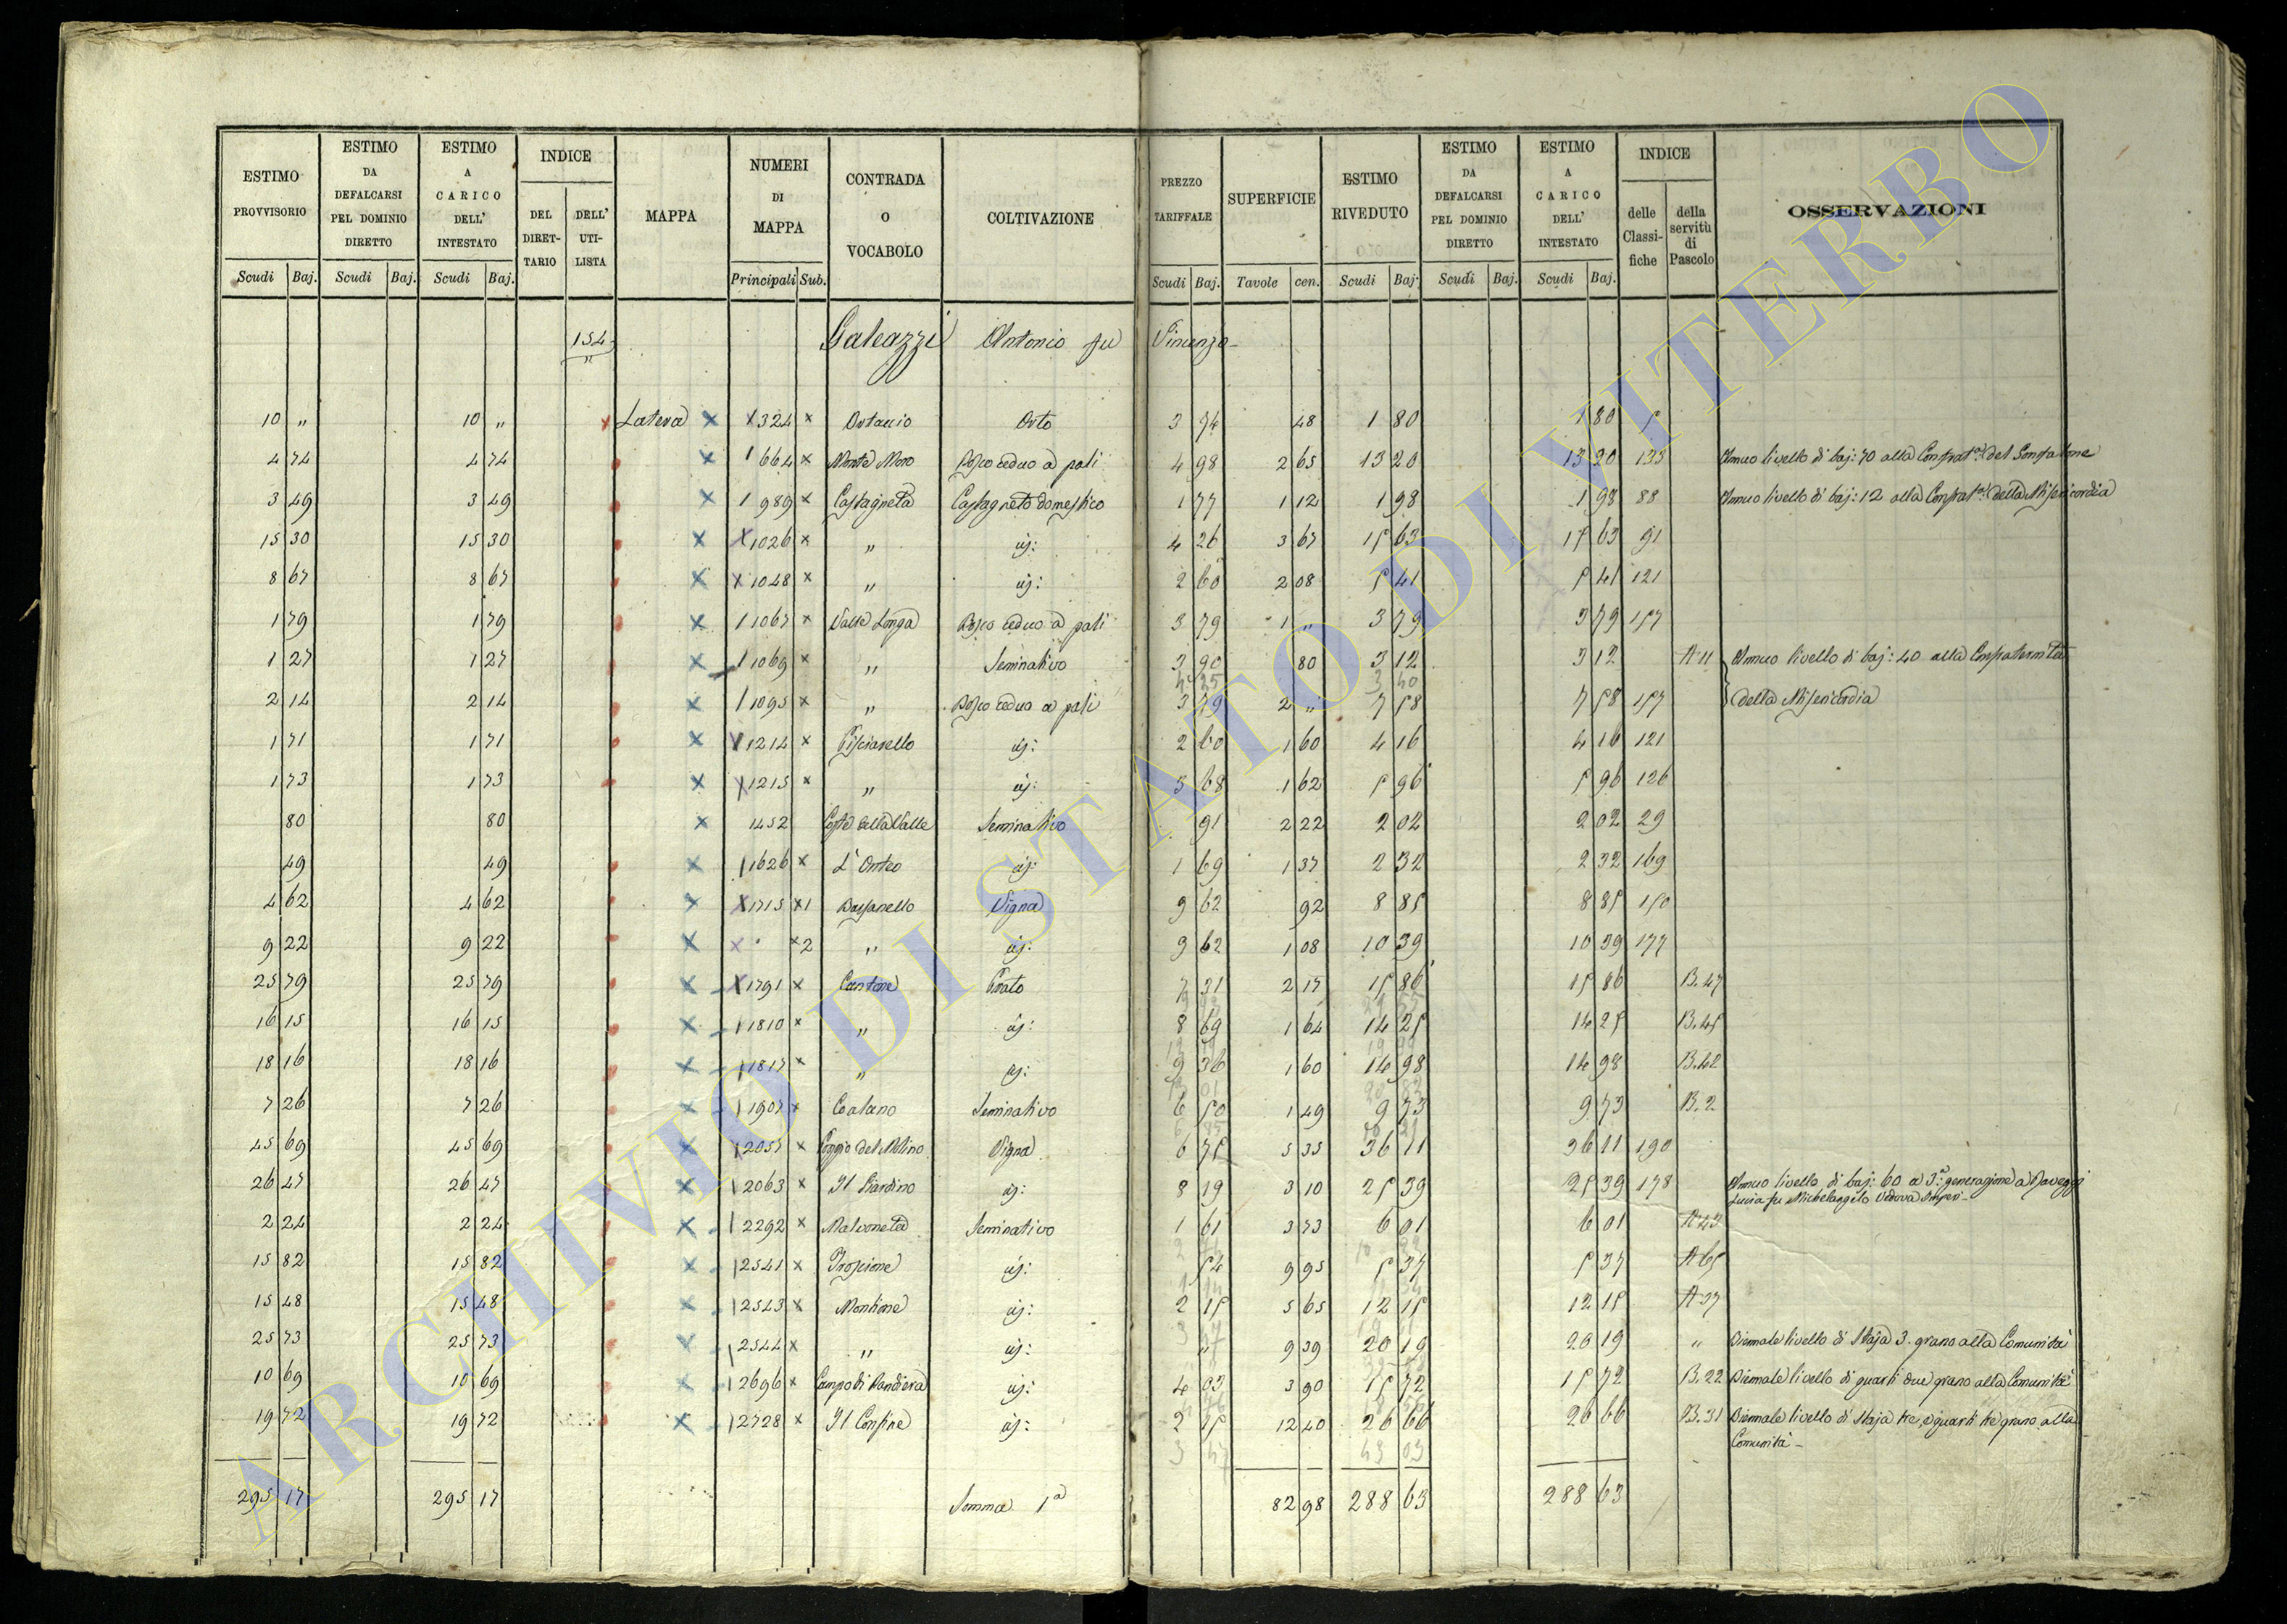 ESTIMO PROVVISORIO Scudi Baj. | ESTIMO DA DEFALCARSI PEL DOMINIO DIRETTO Scudi Baj. | ESTIMO A CARICO DELL' INTESTATO Scudi Baj. | INDICE DEL DIRET-TARIO | DELL' UTI-LISTA | MAPPA | NUMERI DI MAPPA Principali Sub. | CONTRADA O VOCABOLO | COLTIVAZIONE | PREZZO TARIFFALE Scudi Baj. | SUPERFICIE Tavole cen. | ESTIMO RIVEDUTO Scudi Baj. | ESTIMO DA DEFALCARSI PEL DOMINIO DIRETTO Scudi Baj. | ESTIMO A CARICO DELL' INTESTATO Scudi Baj. | INDICE delle Classi-fiche | della servitù di Pascolo | OSSERVAZIONI
154 Galeazzi Antonio fu Vincenzo
10 „ 10 „ Latera 324 Orto 3 74 48 1 80 1 80 5
4 74 4 74 664 Monte Moro Bosco ceduo a pali 4 98 2 65 13 20 13 20 135 Annuo livello di baj: 70 alla Confrat.a del Gonfalone
3 49 3 49 989 Castagneta Castagneto domestico 1 77 1 12 1 98 1 98 88 Annuo livello di baj: 12 alla Confrat.a della Misericordia
15 30 15 30 1026 „ id: 4 26 3 67 15 63 15 63 91
8 67 8 67 1048 „ id: 2 60 2 08 5 41 5 41 121
1 79 1 79 1067 Valle Longa Bosco ceduo a pali 3 79 1 „ 3 79 3 79 157
1 27 1 27 1069 „ Seminativo 3 90 80 3 12 3 12 A 11 Annuo livello di baj: 40 alla Confraternita
4 25 3 40
2 14 2 14 1095 „ Bosco ceduo a pali 3 79 2 „ 7 58 7 58 157 della Misericordia
1 71 1 71 1214 Pisciarello id: 2 60 1 60 4 16 4 16 121
1 73 1 73 1215 „ id: 3 68 1 62 5 96 5 96 126
80 80 1452 Costa della Valle Seminativo 91 2 22 2 02 2 02 29
49 49 1626 id: 1 69 1 37 2 32 2 32 169
4 62 4 62 1715 1 Bassanello Vigna 9 62 92 8 85 8 85 150
9 22 9 22 2 „ id: 9 62 1 08 10 39 10 39 177
25 79 25 79 1791 Cantone Prato 7 31 2 17 15 86 15 86 B. 47
16 15 16 15 1810 „ id: 8 69 1 64 14 25 14 25 B. 45
18 16 18 16 1817 „ id: 9 36 1 60 14 98 14 98 B. 42
7 26 7 26 1907 Seminativo 6 50 1 49 9 73 9 73 B. 2
45 69 45 69 2057 Poggio del Molino Vigna 6 75 5 35 36 11 36 11 190
26 47 26 47 2063 Il Giardino id: 8 19 3 10 25 39 25 39 178 Annuo livello di baj: 60 a 3.a generazione a
Lucia fu Michelangelo Vedova
2 24 2 24 2292 Malvoneta Seminativo 1 61 3 73 6 01 6 01 A 43
15 82 15 82 2541 id: 54 9 95 5 37 5 37 A 65
15 48 15 48 2543 Montione id: 2 15 5 65 12 15 12 15 A 37
25 73 25 73 2544 „ id: „ 9 39 20 19 20 19 „ Biennale livello di Staja 3. grano alla Comunità
10 69 10 69 2696 Campo di Bandiera id: 4 03 3 90 15 72 15 72 B. 22 Biennale livello di quarti due grano alla Comunità
19 72 19 72 2728 Il Confine id: 2 15 12 40 26 66 26 66 B. 31 Biennale livello di Staja tre, e quarti tre grano alla
3 47 43 03 Comunità
295 17 295 17 Somma 1a 82 98 288 63 288 63
ARCHIVIO DI STATO DI VITERBO